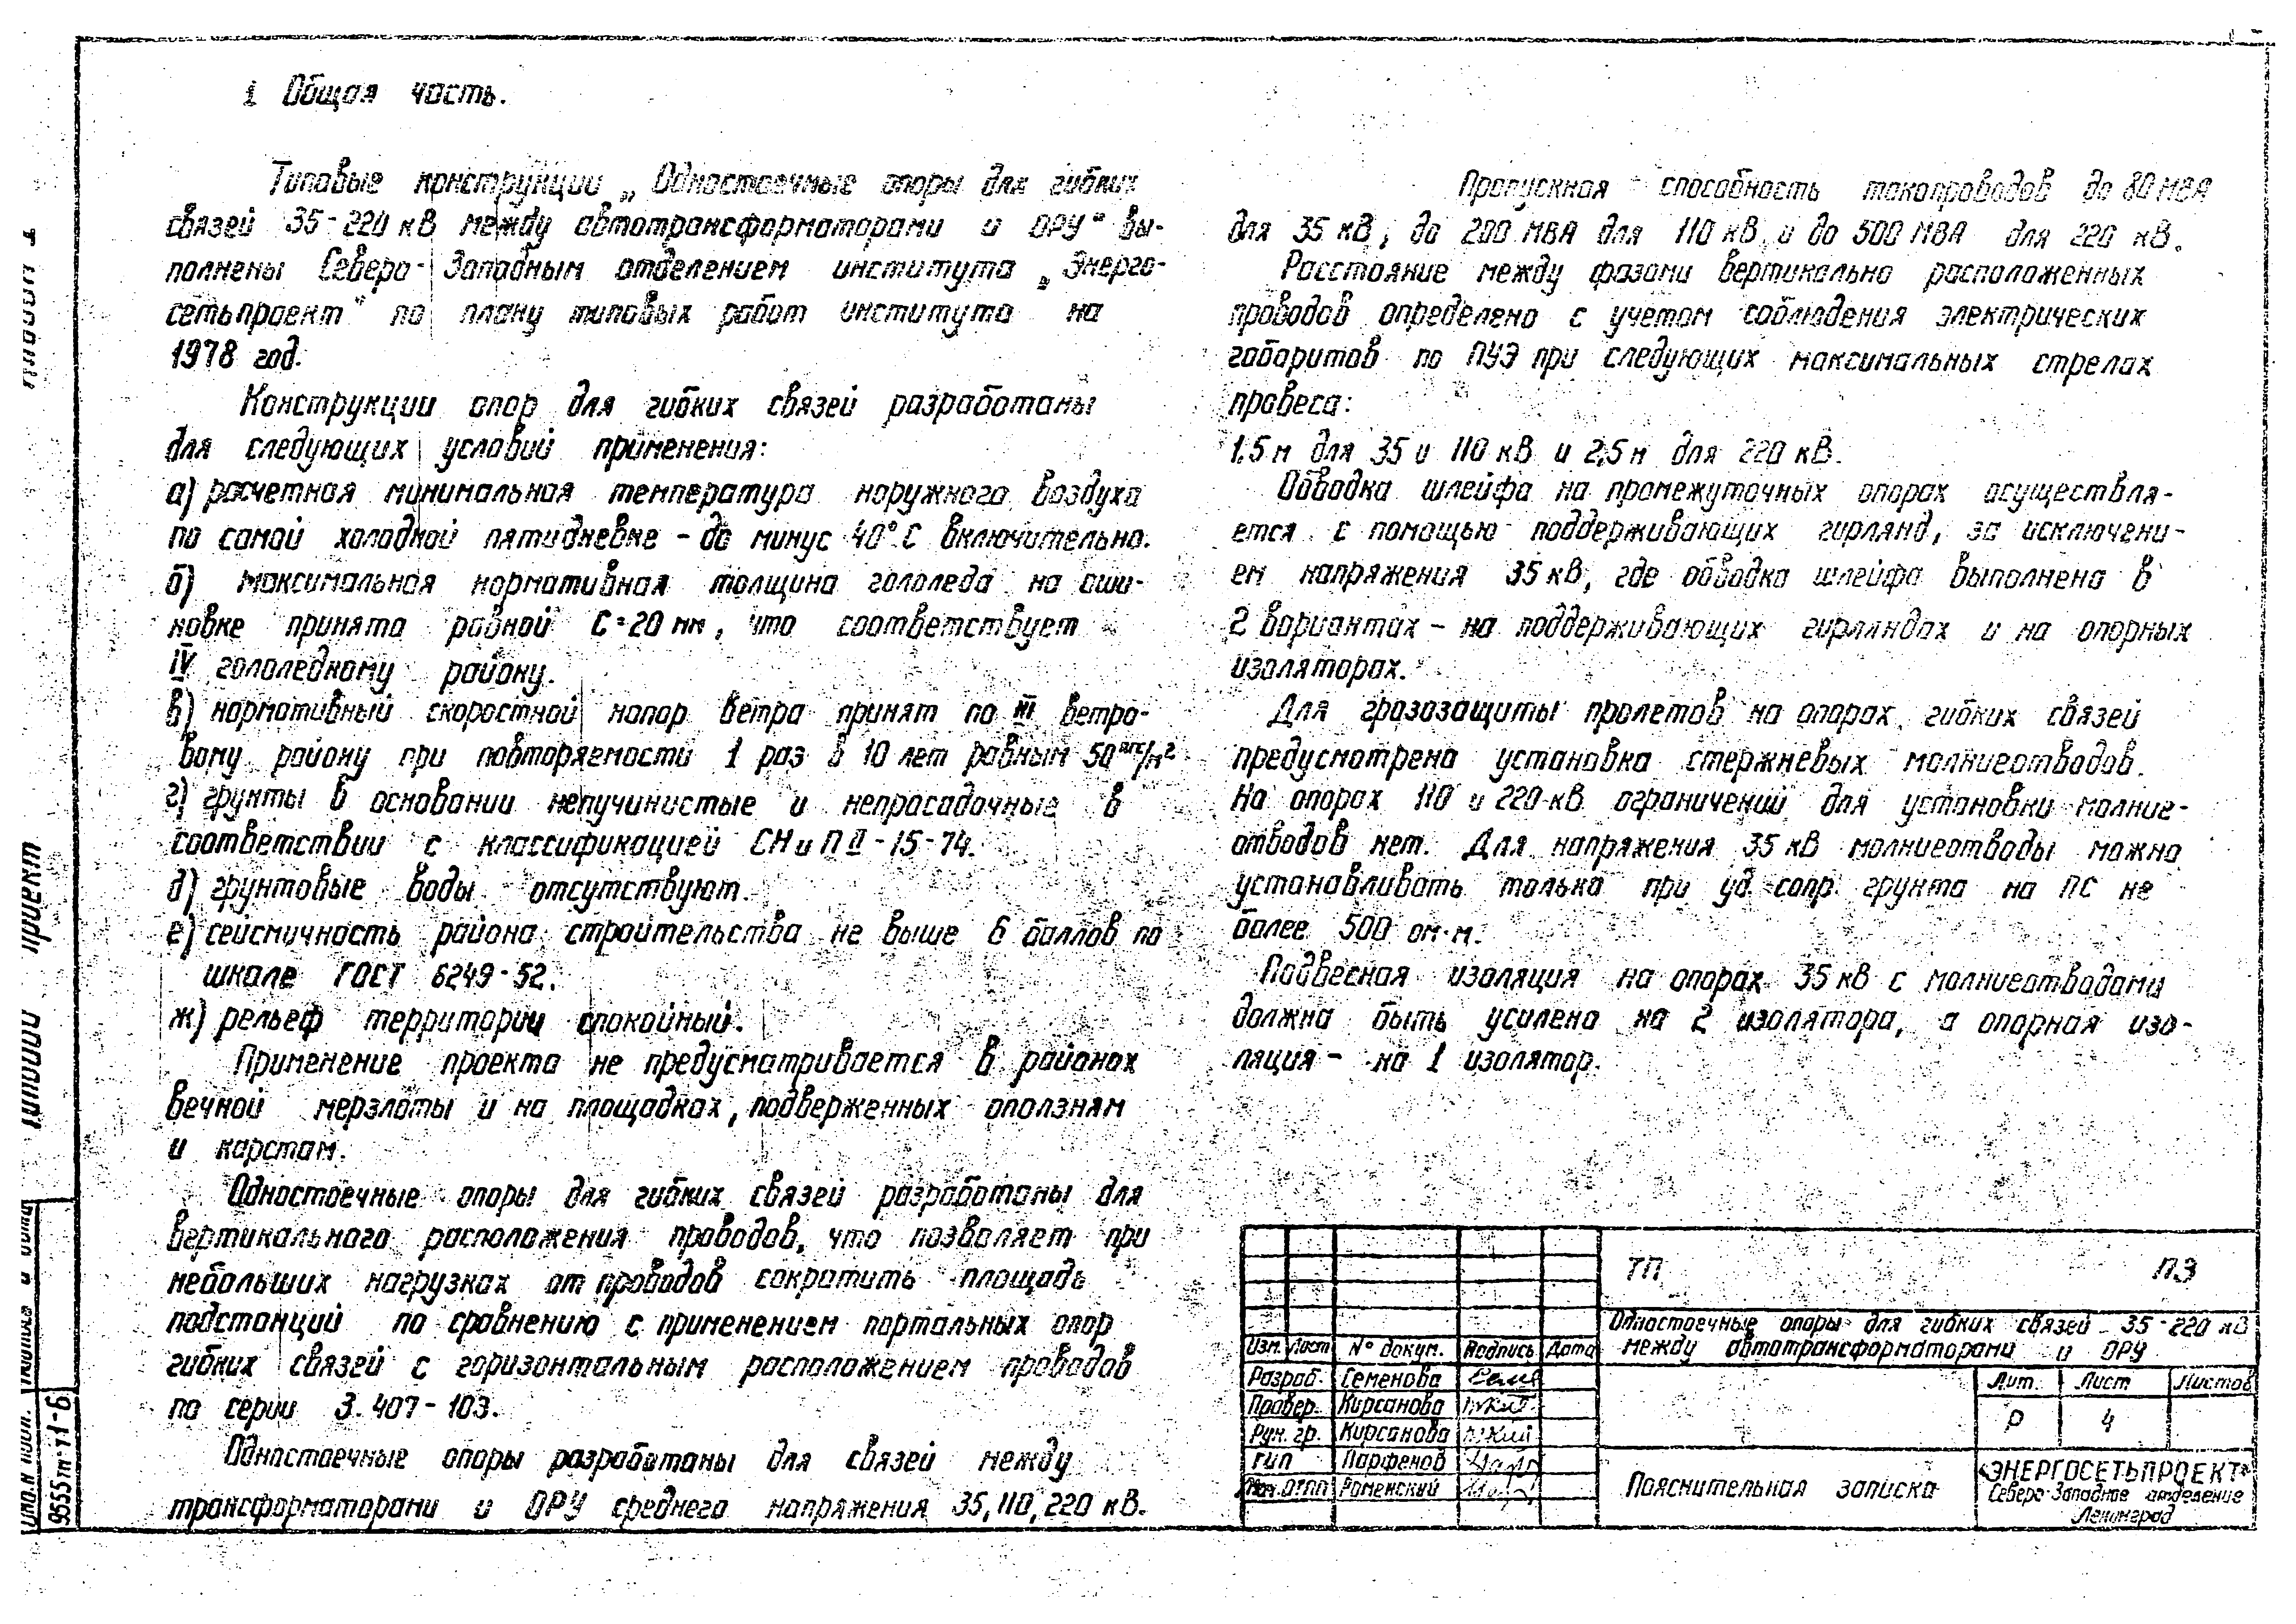 1 Общая часть.
Типовые конструкции „Одностоечные опоры для гибких
связей 35-220 кВ между автотрансформаторами и ОРУ" вы-
полнены Северо-Западным отделением института „Энерго-
сетьпроект" по плану типовых работ института на
1978 год.
Конструкции опор для гибких связей разработаны
для следующих условий применения:
а) расчетная минимальная температура наружного воздуха
по самой холодной пятидневке - до минус 40°С включительно.
б) максимальная нормативная толщина гололеда на оши-
новке принята равной С=20 мм, что соответствует
IV гололедному району.
в) нормативный скоростной напор ветра принят по III ветро-
вому району при повторяемости 1 раз в 10 лет равным 50 кгс/м²
г) грунты в основании непучинистые и непросадочные в
соответствии с классификацией СНиП II-15-74.
д) грунтовые воды отсутствуют.
е) сейсмичность района строительства не выше 6 баллов по
шкале ГОСТ 6249-52.
ж) рельеф территории спокойный.
Применение проекта не предусматривается в районах
вечной мерзлоты и на площадках, подверженных оползням
и карстам.
Одностоечные опоры для гибких связей разработаны для
вертикального расположения проводов, что позволяет при
небольших нагрузках от проводов сократить площадь
подстанций по сравнению с применением портальных опор
гибких связей с горизонтальным расположением проводов
по серии 3.407-103.
Одностоечные опоры разработаны для связей между
трансформаторами и ОРУ среднего напряжения 35, 110, 220 кВ.
Пропускная способность токопроводов до 80 МВА
для 35 кВ, до 200 МВА для 110 кВ, и до 500 МВА для 220 кВ.
Расстояние между фазами вертикально расположенных
проводов определено с учетом соблюдения электрических
габаритов по ПУЭ при следующих максимальных стрелах
провеса:
1.5м для 35 и 110 кВ и 2,5м для 220 кВ.
Обводка шлейфа на промежуточных опорах осуществля-
ется с помощью поддерживающих гирлянд, за исключени-
ем напряжения 35 кВ, где обводка шлейфа выполнена в
2 вариантах - на поддерживающих гирляндах и на опорных
изоляторах.
Для грозозащиты пролетов на опорах гибких связей
предусмотрена установка стержневых молниеотводов.
На опорах 110 и 220 кВ ограничений для установки молние-
отводов нет. Для напряжения 35 кВ молниеотводы можно
устанавливать только при уд. сопр. грунта на ПС не
более 500 ом·м.
Подвесная изоляция на опорах 35 кВ с молниеотводами
должна быть усилена на 2 изолятора, а опорная изо-
ляция - на 1 изолятор.
ТП ПЗ
Одностоечные опоры для гибких связей 35-220 кВ
между автотрансформаторами и ОРУ
Изм. Лист № докум. Подпись Дата
Разраб. Семенова
Провер. Кирсанова
Рук. гр. Кирсанова
ГИП Парфенов
Нач. ОТПП Роменский
Лит. Лист Листов
Р 4
Пояснительная записка
«ЭНЕРГОСЕТЬПРОЕКТ»
Северо-Западное отделение
Ленинград
Типовой проект
Инв.№ подл. Подпись и дата
9555тм-т1-6